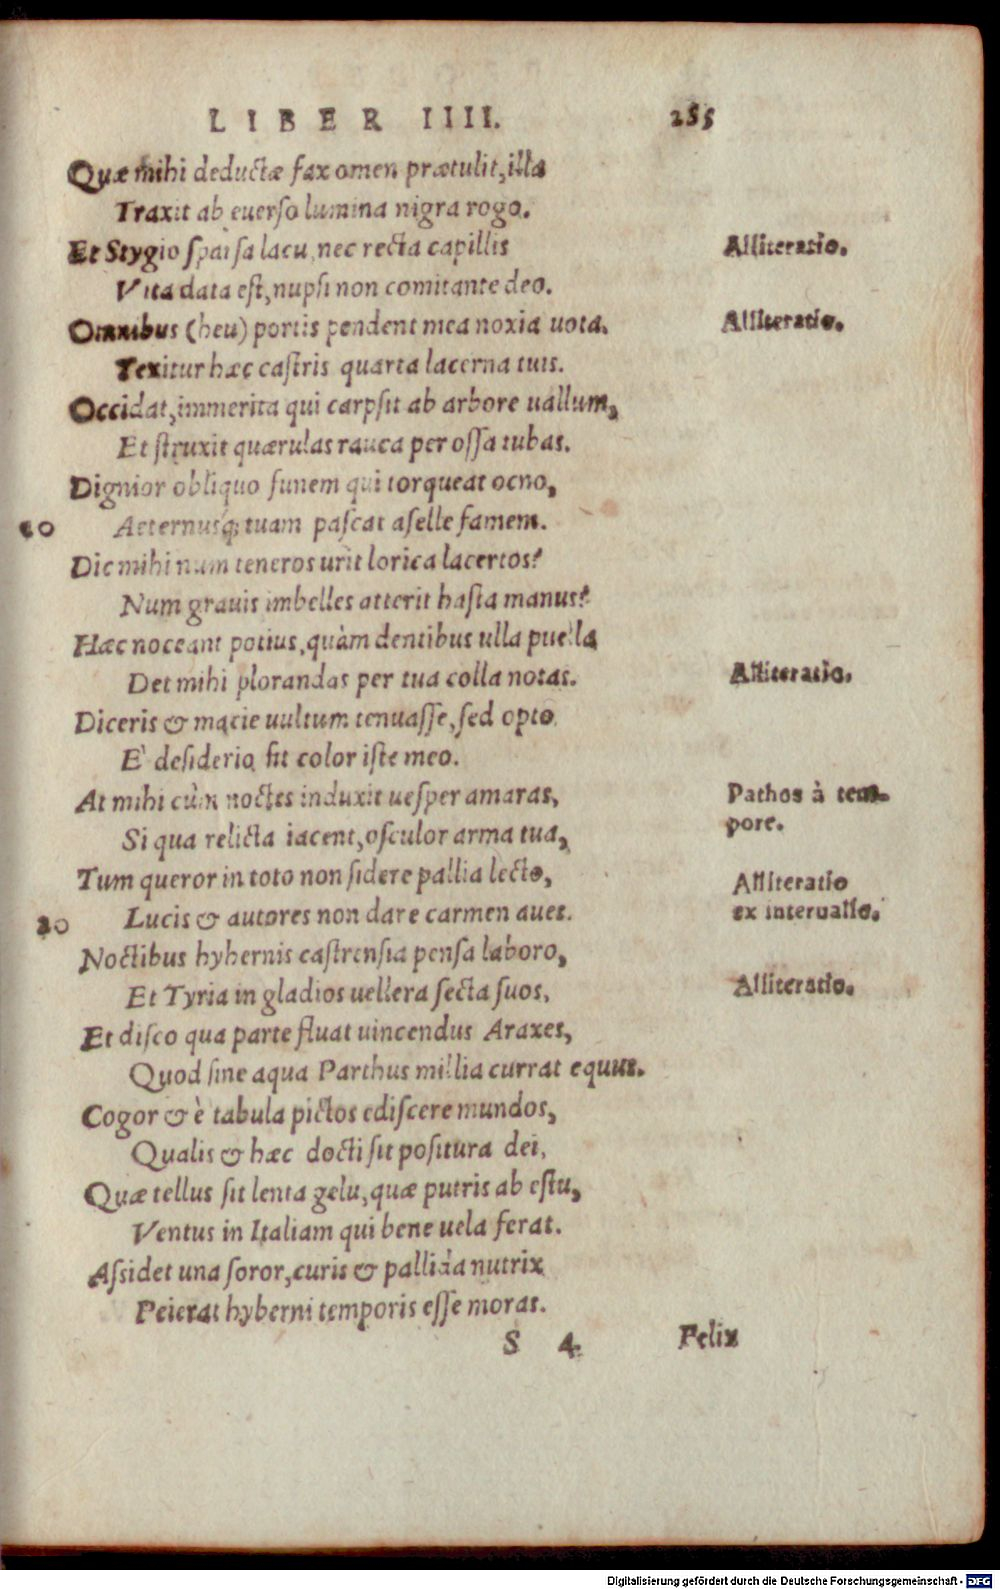 LIBER IIII. 285
Quæ mihi deductæ fax omen prætulit, illa
Traxit ab euerso lumina nigra rogo.
Et Stygio sparsa lacu, nec recta capillis
Alliteratio.
Vita data est, nupsi non comitante deo.
Omnibus (heu) portis pendent mea noxia uota.
Alliteratio.
Texitur hæc castris quarta lacerna tuis.
Occidat, immerita qui carpsit ab arbore uallum,
Et struxit quærulas rauca per ossa tubas.
Dignior obliquo funem qui torqueat ocno,
10 Aeternusq; tuam pascat aselle famem.
Dic mihi num teneros urit lorica lacertos?
Num grauis imbelles atterit hasta manus?
Hæc noceant potius, quàm dentibus ulla puella
Det mihi plorandas per tua colla notas.
Alliteratio.
Diceris & macie uultum tenuasse, sed opto
E` desiderio sit color iste meo.
At mihi cùm noctes induxit uesper amaras,
Pathos à tem-
pore.
Si qua relicta iacent, osculor arma tua,
Tum queror in toto non sidere pallia lecto,
Alliteratio
20 Lucis & autores non dare carmen aues.
ex interuallo.
Noctibus hybernis castrensia pensa laboro,
Et Tyria in gladios uellera secta suos,
Alliteratio.
Et disco qua parte fluat uincendus Araxes,
Quod sine aqua Parthus millia currat equus.
Cogor & è tabula pictos ediscere mundos,
Qualis & hæc docti sit positura dei,
Quæ tellus sit lenta gelu, quæ putris ab estu,
Ventus in Italiam qui bene uela ferat.
Assidet una soror, curis & pallida nutrix
Peierat hyberni temporis esse moras.
S 4 Felix
Digitalisierung gefördert durch die Deutsche Forschungsgemeinschaft - DFG